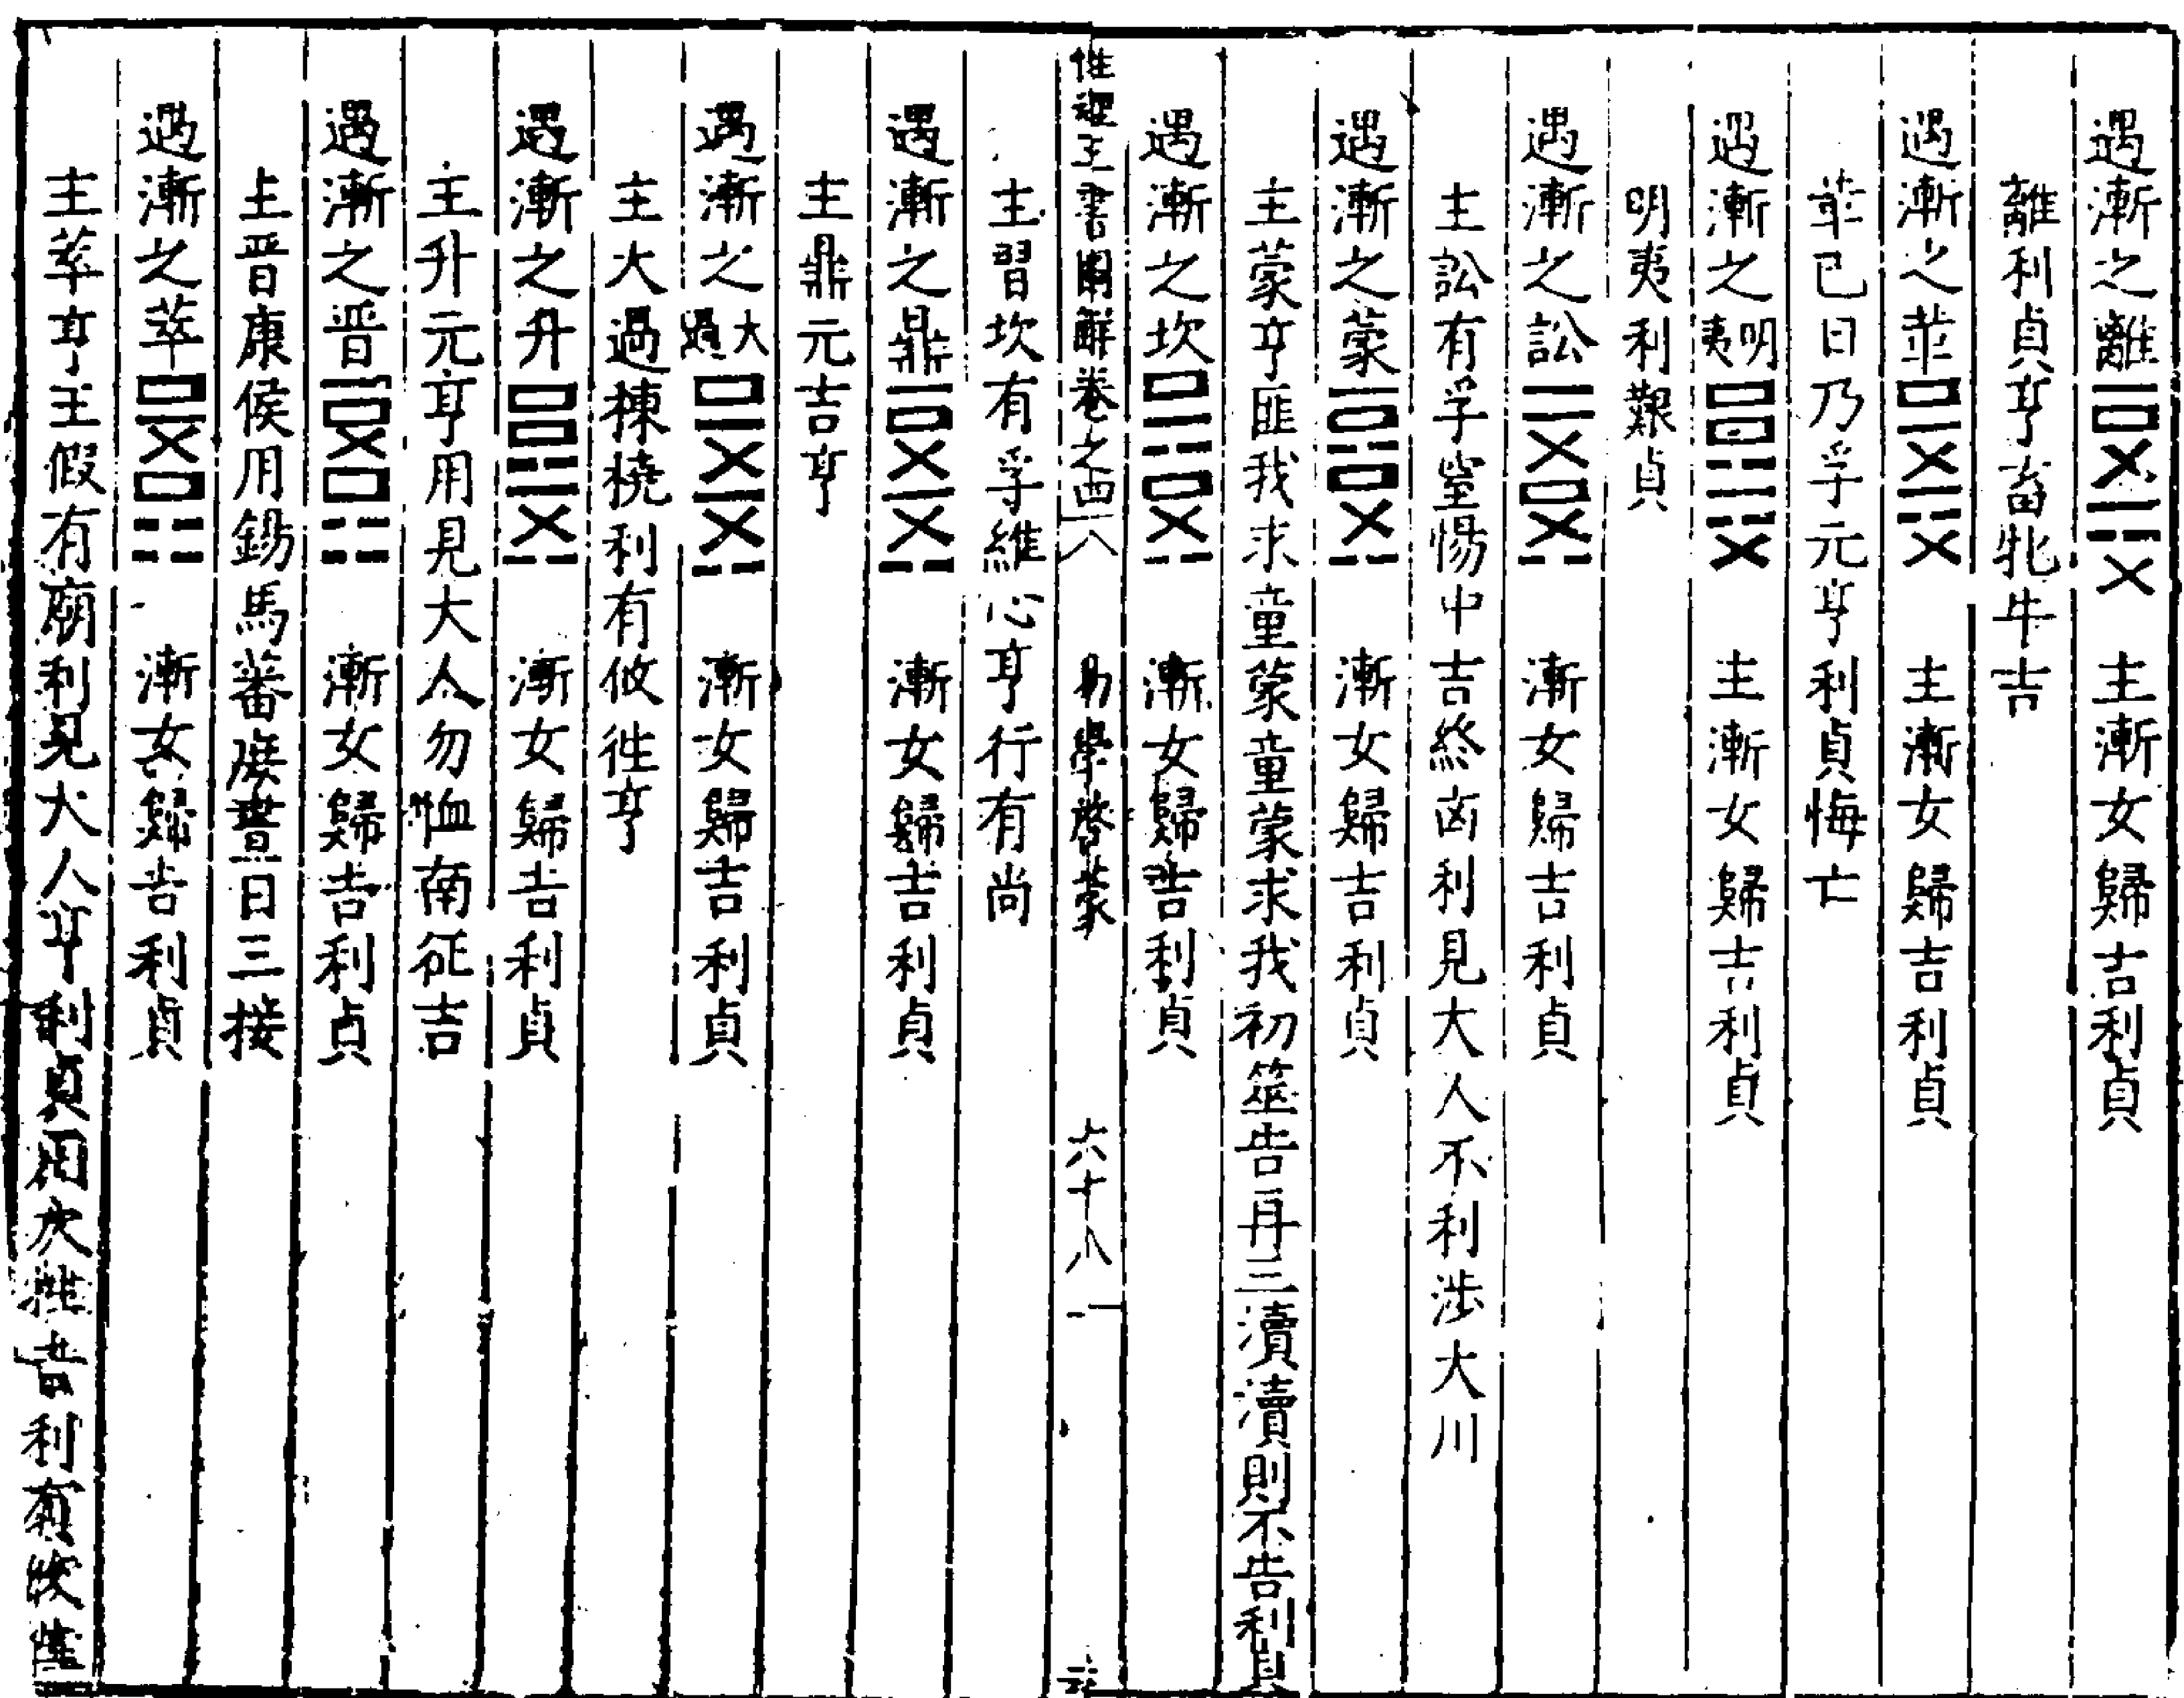 遇漸之離 主漸女歸吉利貞
離利貞亨畜牝牛吉
遇漸之革 主漸女歸吉利貞
革已日乃孚元亨利貞悔亡
遇漸之明夷 主漸女歸吉利貞
明夷利艱貞
遇漸之訟 漸女歸吉利貞
主訟有孚窒惕中吉終凶利見大人不利涉大川
遇漸之蒙 漸女歸吉利貞
主蒙亨匪我求童蒙童蒙求我初筮告再三瀆瀆則不告利貞
遇漸之坎 漸女歸吉利貞
性理 書圖解卷之四 易學啓蒙 六十八
主習坎有孚維心亨行有尚
遇漸之鼎 漸女歸吉利貞
主鼎元吉亨
遇漸之大過 漸女歸吉利貞
主大過棟橈利有攸往亨
遇漸之升 漸女歸吉利貞
主升元亨用見大人勿恤南征吉
遇漸之晋 漸女歸吉利貞
主晋康侯用錫馬蕃庶晝日三接
遇漸之萃 漸女歸吉利貞
主萃亨王假有廟利見大人亨利貞用大牲吉利有攸往